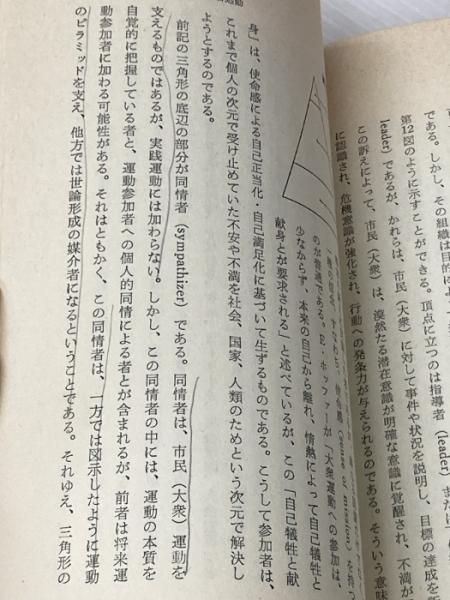 である。しかし、その組織は目的に
第12図のように示すことができる。頂点に立つのは指導者
leader) であるが、かれらは、市民(大衆)に対して事件や状況を説明し、目標の達成を
この訴えによって、市民(大衆)は、漠然たる潜在意識が明確な意識に覚醒され、不満が
に認識され、危機意識が強化され、行動への発条力が与えられるのである。そういう意味
(sense of mission) を持つ
のが普通である。E・ホッファが「大衆運動への参加は、
少なからず、本来の自己から離れ、情熱によって自己犠牲と
献身とが要求される」と述べているが、この「自己犠牲と献
身」は、使命感による自己正当化・自己満足化に基づいて生ずるものである。こうして参加者は、
これまで個人の次元で受け止めていた不安や不満を社会、国家、人類のためという次元で解決し
ようとするのである。
前記の三角形の底辺の部分が同情者 (sympathizer) である。同情者は、市民(大衆)運動を
支えるものではあるが、実践運動には加わらない。しかし、この同情者の中には、運動の本質を
自覚的に把握している者と、運動参加者への個人的同情による者とが含まれるが、前者は将来運
動参加者に加わる可能性がある。それはともかく、この同情者は、一方では図示したように運動
のピラミッドを支え、他方では世論形成の媒介者になるということである。それゆえ、三角形の